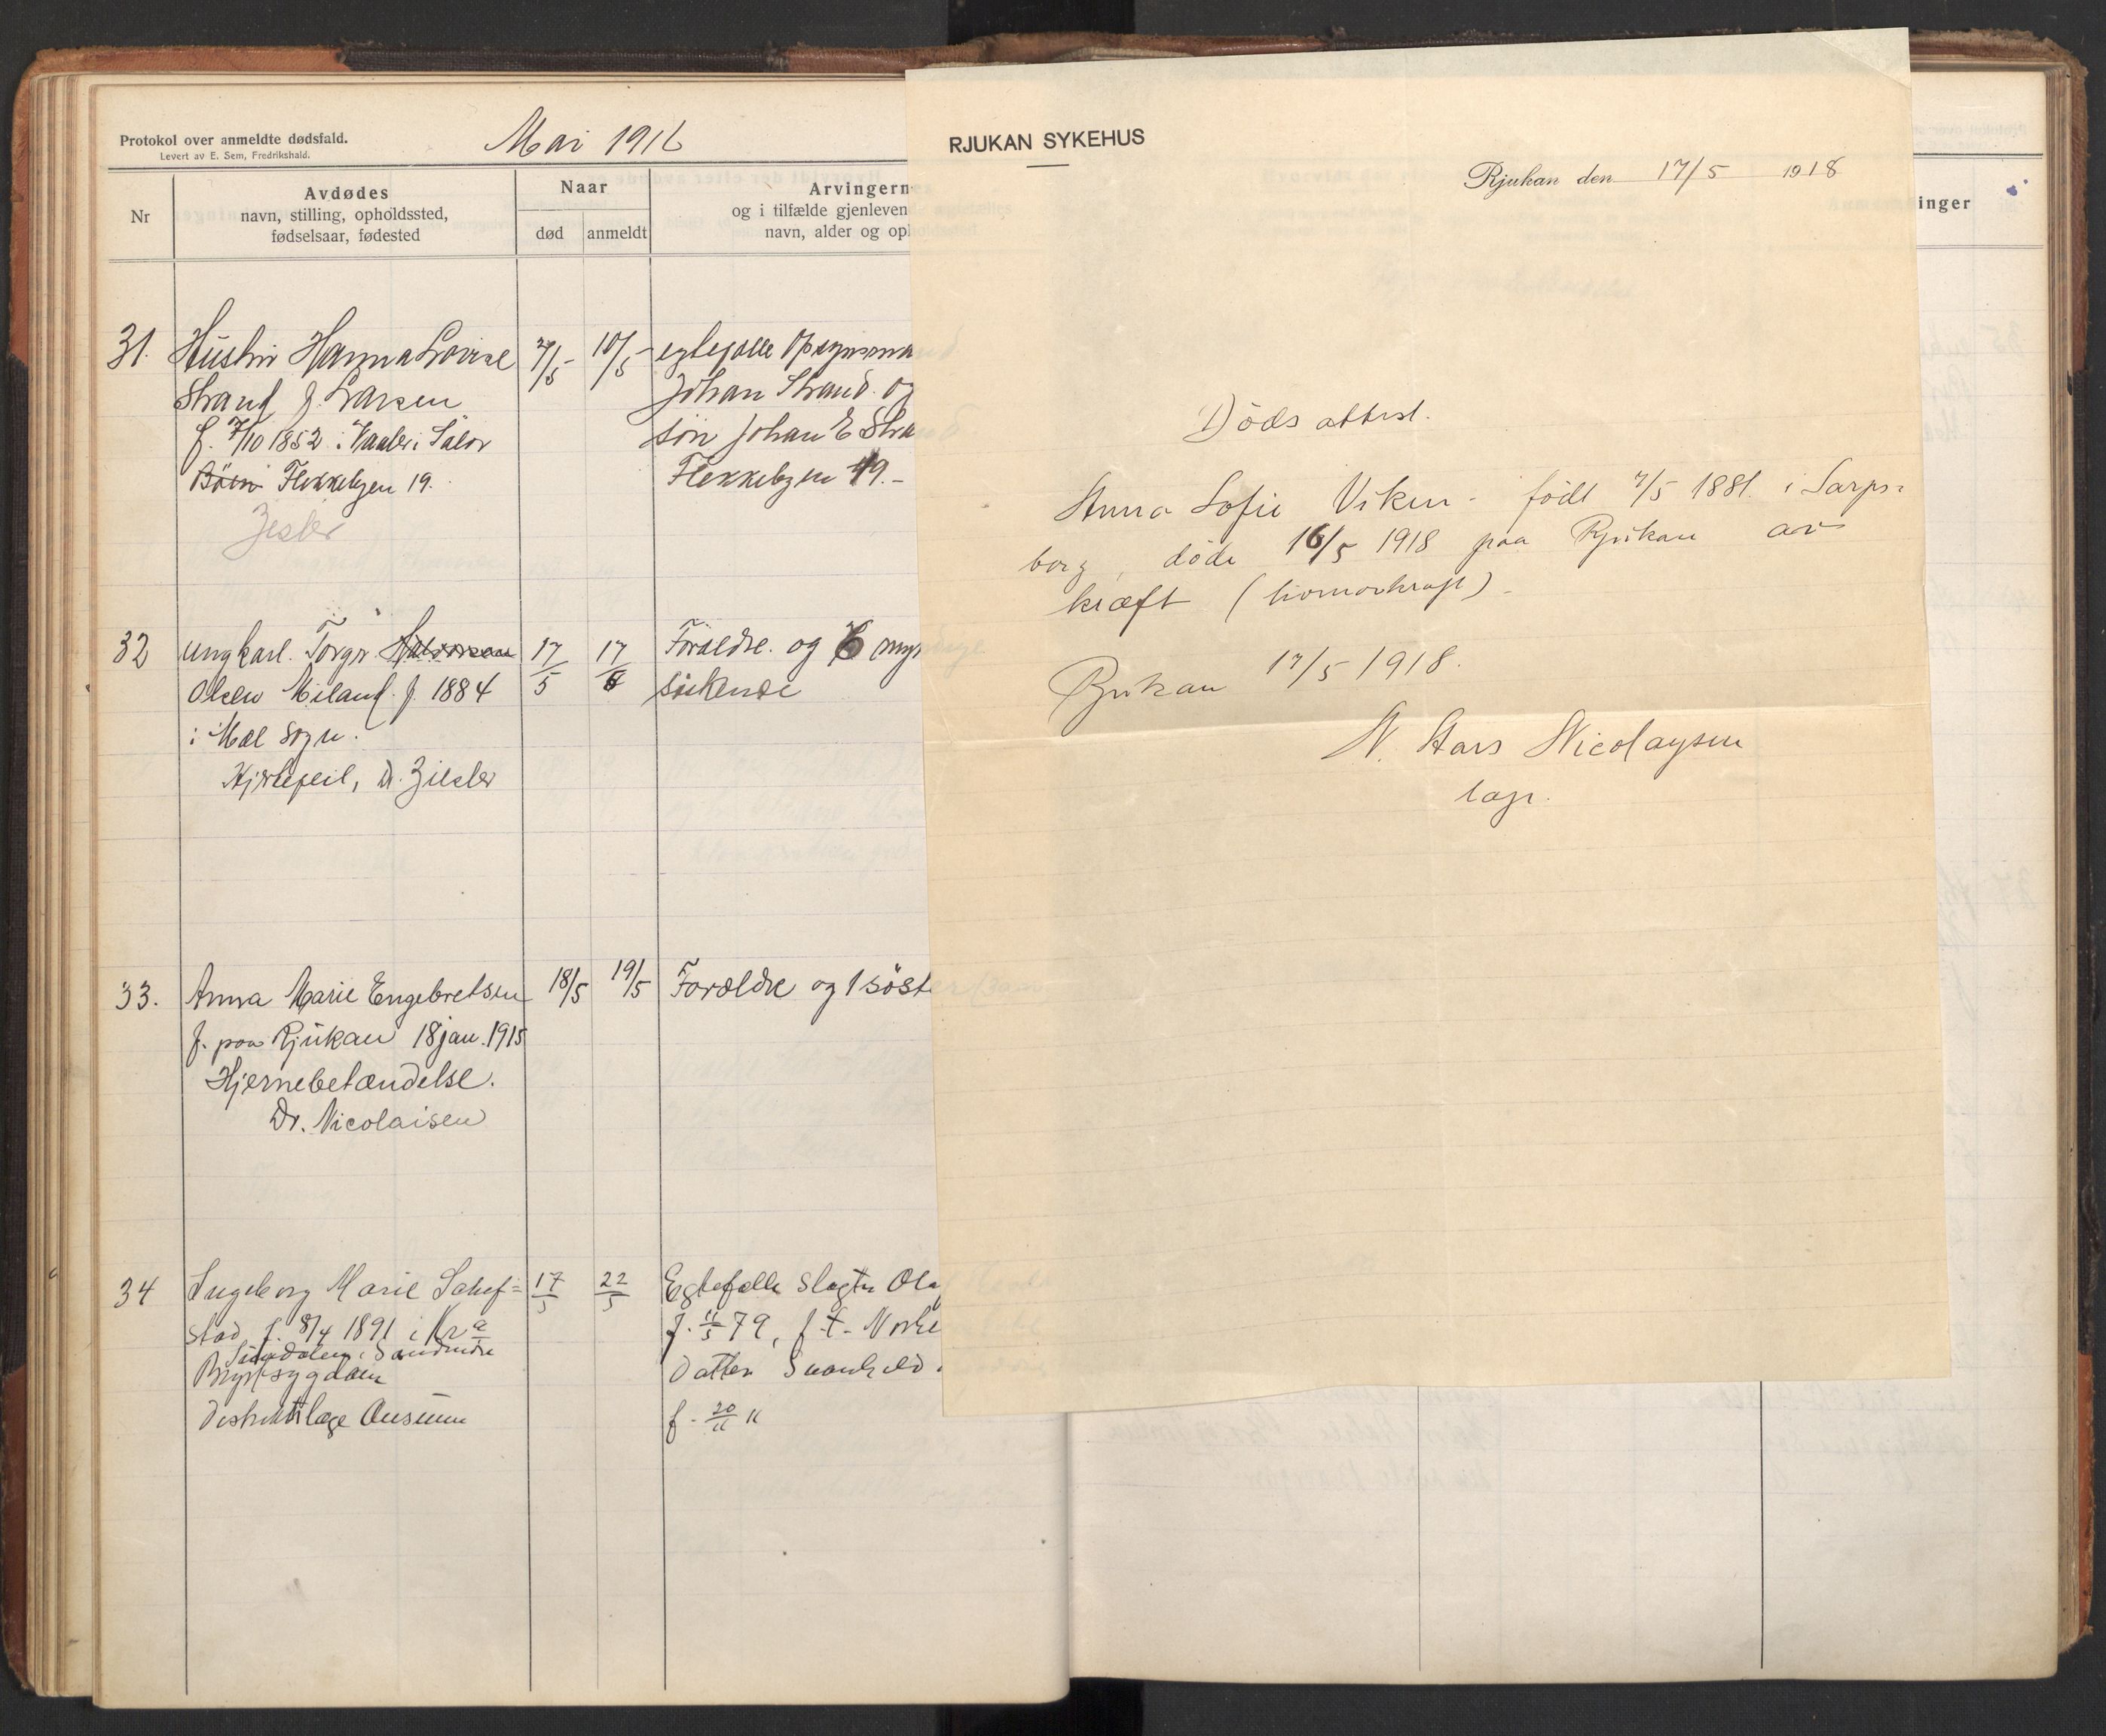 Protokol over anmeldte dødsfald.
Levert av E. Sem, Fredrikshald.
Mai 1916
Nr
Avdødes
navn, stilling, opholdssted,
fødselsaar, fødested
Naar
død
anmeldt
Arvingern
og i tilfælde gjenleven
navn, alder og op
31.
Hustru Hanna Lovise
Strand f. Larsen
f. 7/10 1852 i Vaaler i Solør
Böen Flekkebyen 19.
7/5
10/5
egtefælle Opsynsmand
Johan Strand og
søn Johan E Stra
Flekkebyen 19.-
32
Ungkarl. Torgr Halvorsen
Olsen Miland f. 1884
i Mæl sogn.
Hjertefeil, Dr. Ziesler
17/5
17
Foreldre og 6 myn
söskende
33.
Anna Marie Engebretsen
f. paa Rjukan 18 jan. 1915
Hjernebetændelse.
Dr. Nicolaisen
18/5
19/5
Forældre og 1 söste
34
Ingeborg Marie
stad f. 8/4 1891 i Kra
Brystsygdom
Distriktslæge
17/5
22/5
Egtefælle Slagter Ola
f. 79, f. t.
Datter Svanhild
RJUKAN SYKEHUS
Rjukan den 17/5 1918
Döds attest.
Anna Sofie Viken - født 7/5 1881 i Sarps=
borg, døde 16/5 1918 paa Rjukan av
kræft (livmorkræft).
Rjukan 17/5 1918.
N. Aars Nicolaysen
læge.
inger